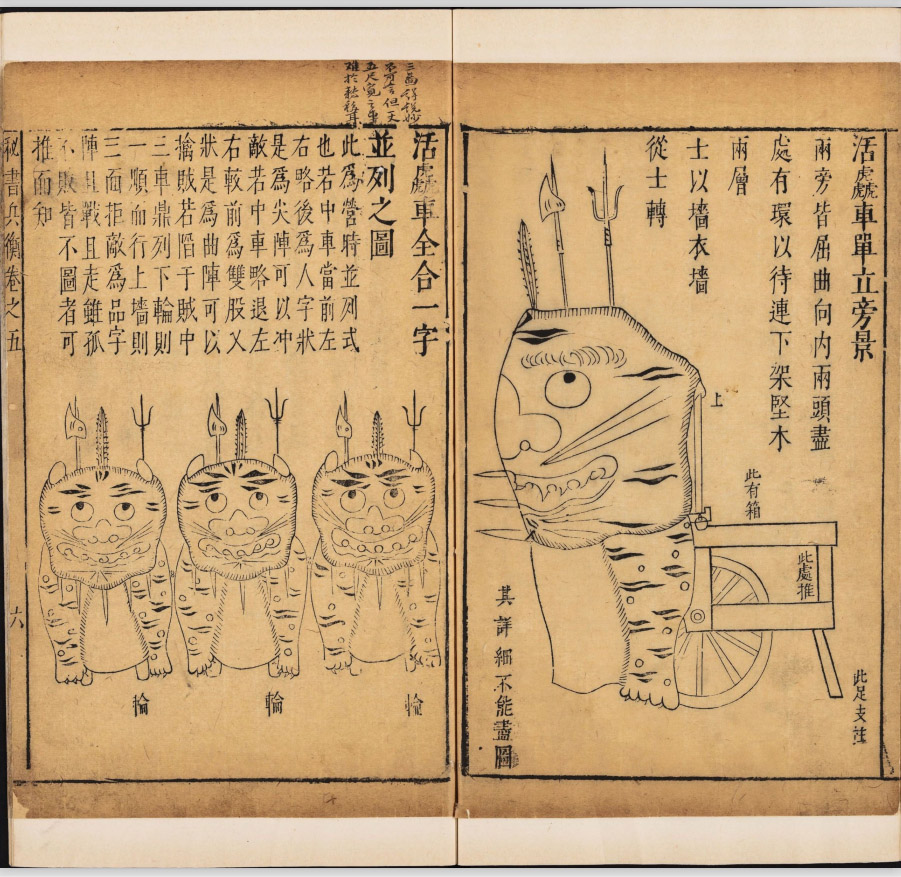 活虤車單立旁景
兩旁皆屈曲向内兩頭盡
處有環以待連下架堅木
兩層
士以墻衣墻
從士轉
上
此有箱
此處推
此足支
其詳細不能盡圖
不可言但
五尺寬之車
難於
活虤車全合一字
並列之圖
此爲營時並列式
也若中車當前左
右略後爲人字狀
是爲尖陣可以冲
敵若中車略退左
右較前爲雙股又
狀是爲曲陣可以
擒賊若䧟于賊中
三車鼎列下輪則
一順而行上墻則
三面拒敵爲品字
陣且戰且走雖孤
不敗皆不圖者可
推而知
輪
輪
輪
秘書兵衡卷之五
六